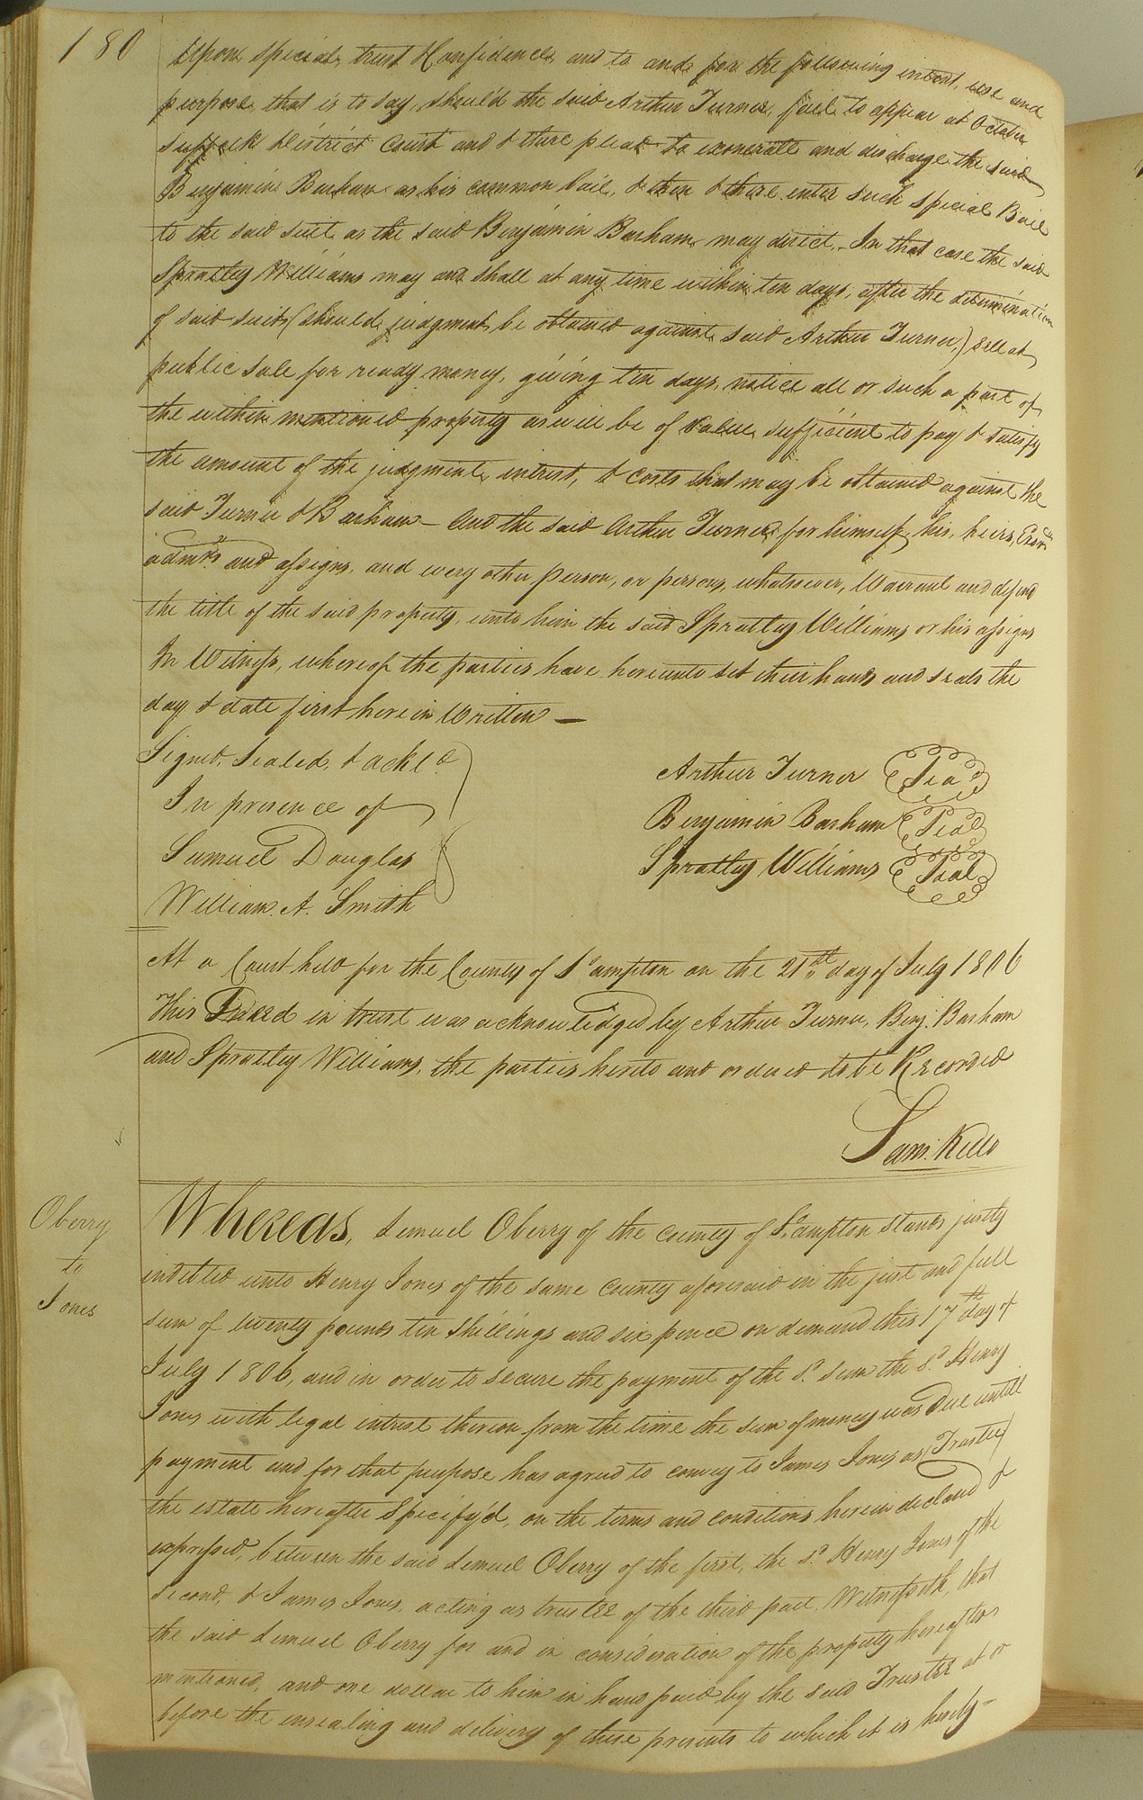 180
Upon special trust & Confidence and to and for the following intent, use and
purpose, that is to say, should the said Arthur Turner, fail to appear at October
Suffolk District Court and & there plead to exonerate and discharge the said
Benjamin Barham as his common bail, & then & there enter such special Bail
to the said suit as the said Benjamin Barham may direct. In that case the said
Spratley Williams may and shall at any time within ten days, after the determination
of said suit (should judgment be obtained against said Arthur Turner,) sell at
public sale for ready money, giving ten days, notice all or such a part of
the within mentioned property as will be of value sufficient to pay & satisfy
the amount of the judgment, intrest, & costs that may be obtained against the
said Turner & Barham — And the said Arthur Turner for himself his, heirs, Exors
admrs and assigns, and every other person, or persons, whatsoever, Warrant and defend
the title of the said property, unto him the said Spratley Williams or his assigns
In Witness, whereof the parties have hereunto set their hands and seals the
day & date first herein Written —
Signed, Sealed, & ackld.
In presence of
Samuel Douglas
William. A. Smith
Arthur Turner Seal
Benjamin Barham Seal
Spratley Williams Seal
At a Court held for the County of So ampton on the 21st day of July 1806
This Deed in trust was acknowledged by Arthur Turner, Benj. Barham
and Spratley Williams, the parties hereto and ordered to be Recorded
Sam. Kello
Oberry
to
Jones
Whereas, Lemuel Oberry of the county of So ampton stands justly
indebted unto Henry Jones of the same County aforesaid in the just and full
sum of twenty pounds ten Shillings and six pence on demand this 17th day of
July 1806, and in order to secure the payment of the sd. sum the sd. Henry
Jones with legal intrest thereon from the time the sum of money was Due untill
payment and for that purpose has agreed to convey to James Jones as (Trustee)
the estate hereafter Specify'd, on the terms and conditions herein declared &
expressed, between the said Lemuel Oberry of the first, the sd. Henry Jones of the
second, & James Jones, acting as trustee of the third part, Witnesseth, that
the said Lemuel Oberry for and in consideration of the property hereafter
mentioned, and one dollar to him in hand paid by the said Trustee at or
before the ensealing and delivery of these presents to which it is hereby-